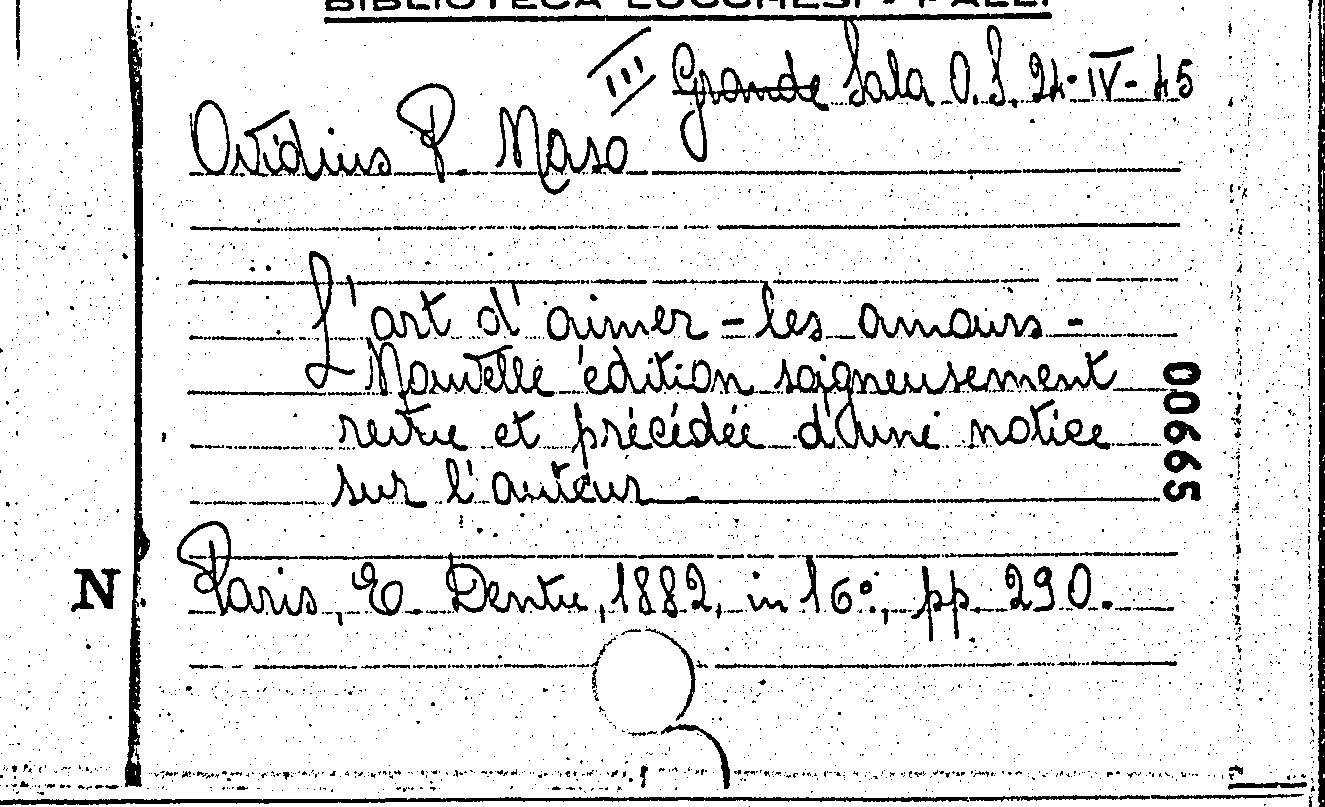 BIBLIOTECA LUCCHESI - PALLI
III Grande Sala O. S. 24-IV-45
Ovidius P. Naso
L'art d'aimer - les amours -
Nouvelle édition soigneusement
revue et précédée d'une notice
sur l'auteur
59900
N
Paris, E. Dentu, 1882, in 16°, pp. 290.